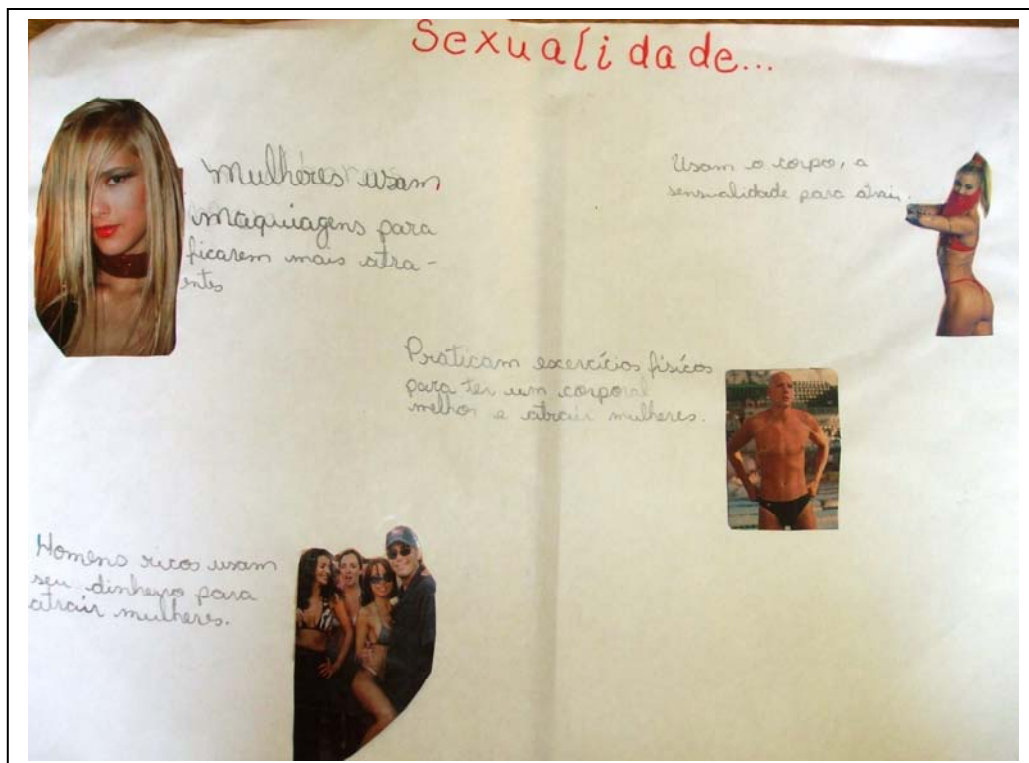 Sexualidade...
Mulheres usam
maquiagens para
ficarem mais atra-
entes
Usam o corpo, a
sensualidade para atrair.
Praticam exercícios físicos
para ter um corpo
melhor e atrair mulheres.
Homens ricos usam
seu dinheyro para
atrair mulheres.